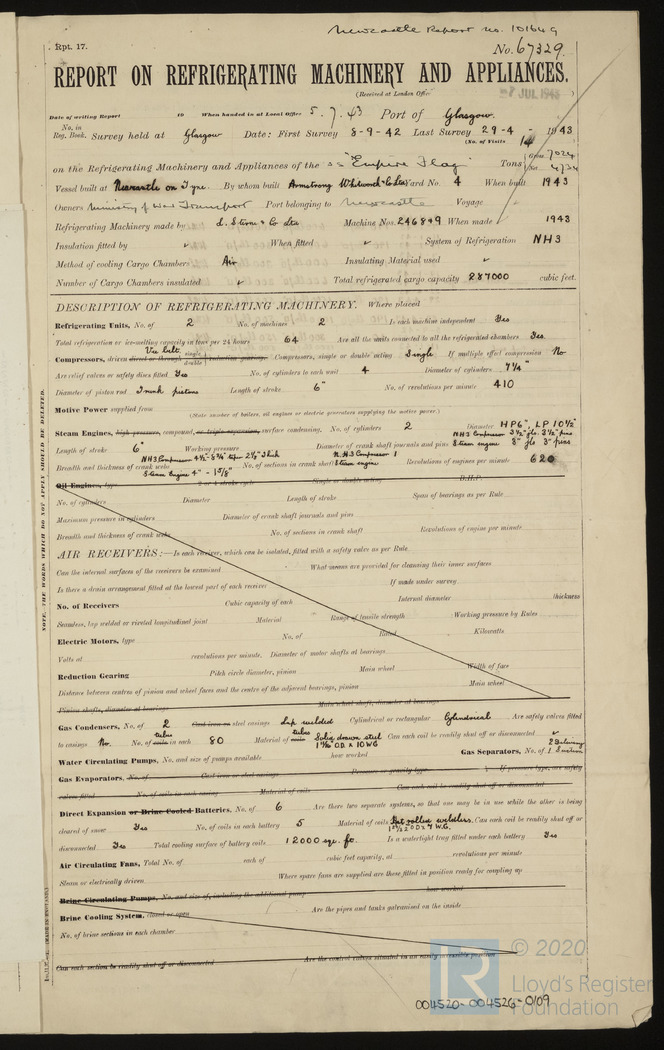 Newcastle Report no. 101649
Rpt. 17.
No. 67329.
REPORT ON REFRIGERATING MACHINERY AND APPLIANCES.
(Received at London Office
JUL 1943
Date of writing Report 19 When handed in at Local Office 5.7.43 Port of Glasgow.
No. in Reg. Book. Survey held at Glasgow Date: First Survey 8-9-42 Last Survey 29-4- 1943
(No. of Visits 14
on the Refrigerating Machinery and Appliances of the ss "Empire Flag" Tons Gross 7024 Net 4734
Vessel built at Newcastle on Tyne. By whom built Armstrong Whitworth & Co Ltd Yard No. 4 When built 1943
Owners Ministry of War Transport Port belonging to Newcastle Voyage
Refrigerating Machinery made by L. Sterne & Co Ltd Machine Nos. 246849 When made 1943
Insulation fitted by When fitted System of Refrigeration NH3
Method of cooling Cargo Chambers Air Insulating Material used
Number of Cargo Chambers insulated Total refrigerated cargo capacity 287000 cubic feet.
DESCRIPTION OF REFRIGERATING MACHINERY. Where placed
Refrigerating Units, No. of 2 No. of machines 2 Is each machine independent Yes
Total refrigeration or ice-melting capacity in tons per 24 hours 64 Are all the units connected to all the refrigerated chambers Yes.
Compressors, driven direct or through single double reduction gearing. Vee belt. Compressors, single or double acting Single If multiple effect compression No
Are relief valves or safety discs fitted Yes No. of cylinders to each unit 4 Diameter of cylinders 7¼"
Diameter of piston rod Trunk pistons Length of stroke 6" No. of revolutions per minute 410
Motive Power supplied from
(State number of boilers, oil engines or electric generators supplying the motive power.)
Steam Engines, high pressure, compound, or triple expansion, surface condensing. No. of cylinders 2 Diameter HP 6", LP 10½"
Length of stroke 6" Working pressure Diameter of crank shaft journals and pins NH3 Compressor 3½" jls. 3½" pins Steam engine 3" jls 3" pins
Breadth and thickness of crank webs NH3 Compressor 4¾"- 8¾" taper 2⅛" thick Steam Engine 4" - 1⅝" No. of sections in crank shaft NH3 Compressor 1 Steam engine Revolutions of engines per minute 620
Oil Engines, type 2 or 4 stroke cycle Single or double acting B.H.P.
No. of cylinders Diameter Length of stroke Span of bearings as per Rule
Maximum pressure in cylinders Diameter of crank shaft journals and pins
Breadth and thickness of crank webs No. of sections in crank shaft Revolutions of engine per minute
AIR RECEIVERS:—Is each receiver, which can be isolated, fitted with a safety valve as per Rule
Can the internal surfaces of the receivers be examined What means are provided for cleansing their inner surfaces
Is there a drain arrangement fitted at the lowest part of each receiver If made under survey
No. of Receivers Cubic capacity of each Internal diameter thickness
Seamless, lap welded or riveted longitudinal joint Material Range of tensile strength Working pressure by Rules
Electric Motors, type No. of Rated Kilowatts
Volts at revolutions per minute. Diameter of motor shafts at bearings
Reduction Gearing Pitch circle diameter, pinion Main wheel Width of face
Distance between centres of pinion and wheel faces and the centre of the adjacent bearings, pinion Main wheel
Pinion shafts, diameter at bearings Main wheel shaft, diameter at bearings
Gas Condensers, No. of 2 Cast iron or steel casings Lap welded Cylindrical or rectangular Cylindrical Are safety valves fitted
to casings No. No. of coils tubes in each 80 Material of coils tubes Solid drawn steel O.D. x 10 WG Can each coil be readily shut off or disconnected
Water Circulating Pumps, No. and size of pumps available how worked Gas Separators, No. of 2 Delivery 1 Suction
Gas Evaporators, No. of Cast iron or steel casings Pressure or gravity type If pressure type, are safety
valves fitted No. of coils in each casing Material of coils Can each coil be readily shut off or disconnected
Direct Expansion or Brine Cooled Batteries, No. of 6 Are there two separate systems, so that one may be in use while the other is being
cleared of snow Yes No. of coils in each battery 5 Material of coils Hot rolled weldless. O.D x 7 W.G. Can each coil be readily shut off or
disconnected Yes Total cooling surface of battery coils 12000 sqr. ft. Is a watertight tray fitted under each battery Yes
Air Circulating Fans, Total No. of each of cubic feet capacity, at revolutions per minute
Steam or electrically driven Where spare fans are supplied are these fitted in position ready for coupling up
Brine Circulating Pumps, No. and size of, including the additional pump how worked
Brine Cooling System, closed or open Are the pipes and tanks galvanised on the inside
No. of brine sections in each chamber
Can each section be readily shut off or disconnected Are the control valves situated in an easily accessible position
NOTE.—THE WORDS WHICH DO NOT APPLY SHOULD BE DELETED.
© 2020
LR
Lloyd's Register
Foundation
004520-004526-0109